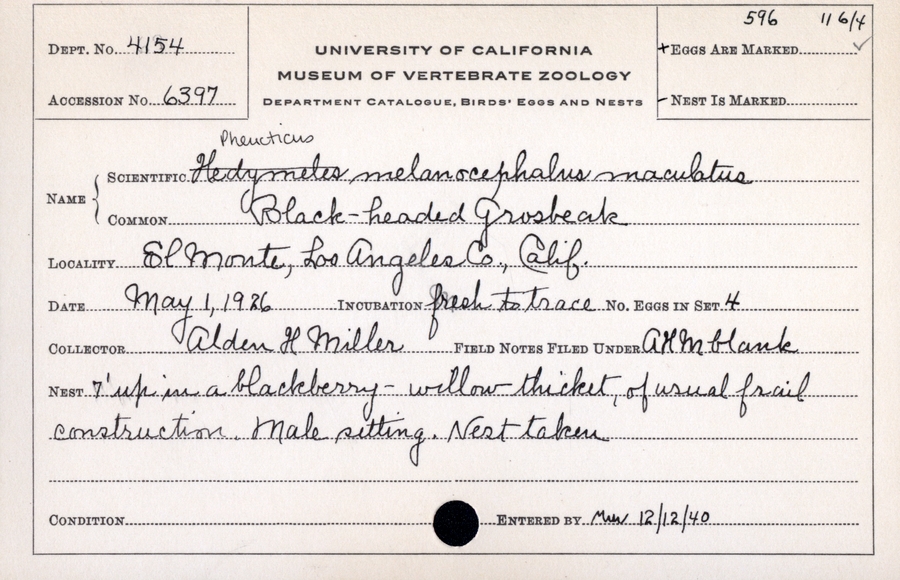 596 11 6/4
Dept. No. 4154
UNIVERSITY OF CALIFORNIA
+ Eggs Are Marked ✓
MUSEUM OF VERTEBRATE ZOOLOGY
Accession No. 6397
Department Catalogue, Birds' Eggs and Nests
- Nest Is Marked
Pheucticus
Name { Scientific Hedymeles melanocephalus maculatus
Common Black-headed Grosbeak
Locality El Monte, Los Angeles Co., Calif.
Date May 1, 1926 Incubation fresh to trace No. Eggs in Set 4
Collector Alden H Miller Field Notes Filed Under AHM blank
Nest 7' up in a blackberry - willow thicket, of usual frail
construction. Male sitting. Nest taken
Condition Entered by 12/12/40